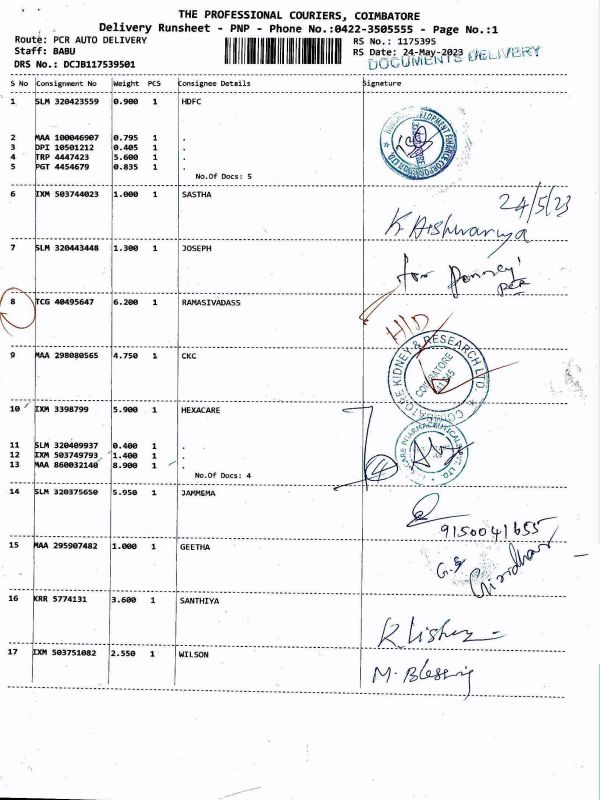 THE PROFESSIONAL COURIERS, COIMBATORE
Delivery Runsheet - PNP - Phone No.:0422-3505555 - Page No.:1
Route: PCR AUTO DELIVERY
RS No.: 1175395
Staff: BABU
RS Date: 24-May-2023
DOCUMENTS DELIVERY
DRS No.: DCJB117539501
S No Consignment No Weight PCS Consignee Details Signature
1 SLM 320423559 0.900 1 HDFC
2 MAA 100046907 0.795 1 .
3 DPI 10501212 0.405 1 .
4 TRP 4447423 5.600 1 .
5 PGT 4454679 0.835 1 .
No.Of Docs: 5
6 IXM 503744023 1.000 1 SASTHA
24/5/23
K Aishwarya
7 SLM 320443448 1.300 1 JOSEPH
for
8 TCG 40495647 6.200 1 RAMASIVADASS
H/D
9 MAA 298080565 4.750 1 CKC
COIMBATORE KIDNEY & RESEARCH LTD.
COIMBATORE
10 IXM 3398799 5.900 1 HEXACARE
11 SLM 320409937 0.400 1 .
12 IXM 503749793 1.400 1 .
13 MAA 860032140 8.900 1 .
No.Of Docs: 4
4
14 SLM 320375650 5.950 1 JAMMEMA
9150041655
15 MAA 295907482 1.000 1 GEETHA
G.S Giridhar
16 KRR 5774131 3.600 1 SANTHIYA
17 IXM 503751082 2.550 1 WILSON
M. Blessing